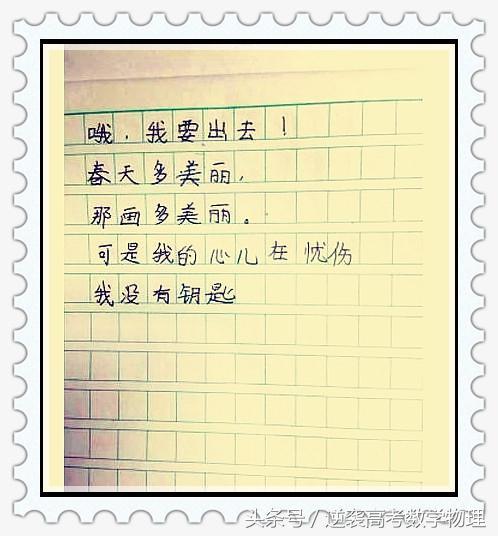 哦，我要出去！
春天多美丽，
那画多美丽。
可是我的心儿在忧伤
我没有钥匙
头条号／逆袭高考数学物理